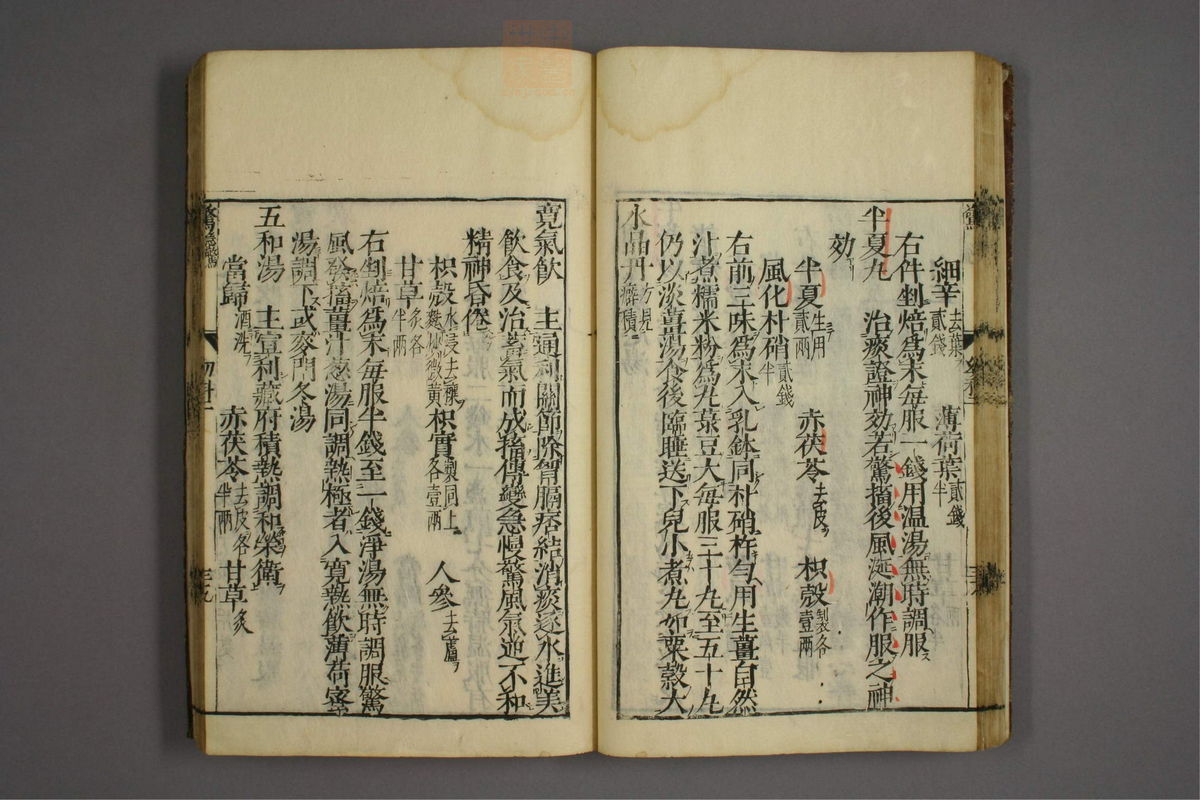 細辛去葉貳錢 薄荷葉貳錢半
右件剉焙爲末每服一錢用温湯無時調服
半夏丸 治痰證神効若驚搐後風涎潮作服之神
効
半夏生用貳兩 赤茯苓去皮 枳殻製各壹兩
風化朴硝貳錢半
右前三味爲末入乳鉢同朴硝杵勻用生薑自然
汁煮糯米粉爲丸菉豆大每服三十丸至五十丸
仍以淡薑湯食後臨睡送下兒小煮丸如粟穀大
水晶丹方見癖積
寛氣飲 主通利關節除胷膈痞結消痰逐水進美
飲食及治蓄氣而成搐傳變急慢驚風氣逆不和
精神昏倦
枳殻水浸去穰麩炒微黄 枳實製同上各壹兩 人參去蘆
甘草炙各半兩
右剉焙爲末每服半錢至一錢淨湯無時調服驚
風發搐薑汁葱湯同調熱極者入寛熱飲薄荷蜜
湯調下或麥門冬湯
五和湯 主宣利藏府積熱調和榮衛
當歸酒洗 赤茯苓去皮各半兩 甘草炙